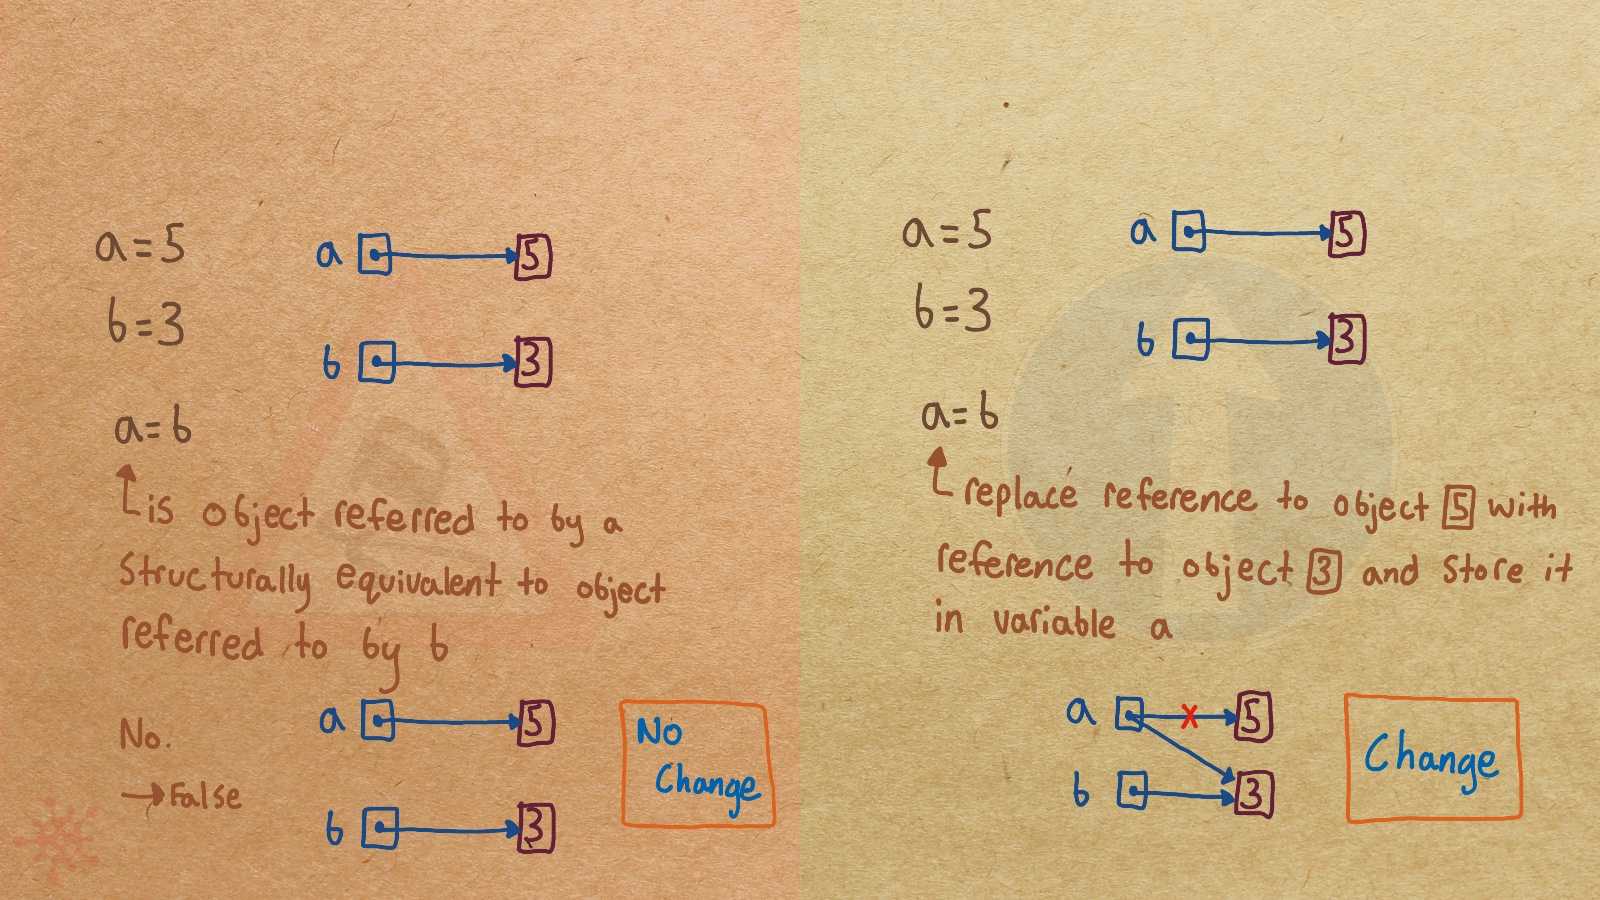 a=5
a 5
b=3
b 3
a=b
is object referred to by a
structurally equivalent to object
referred to by b
No.
→ False
a 5
b 3
No
Change
a=5
a 5
b=3
b 3
a=b
replace reference to object 5 with
reference to object 3 and store it
in variable a
a x 5
b 3
Change